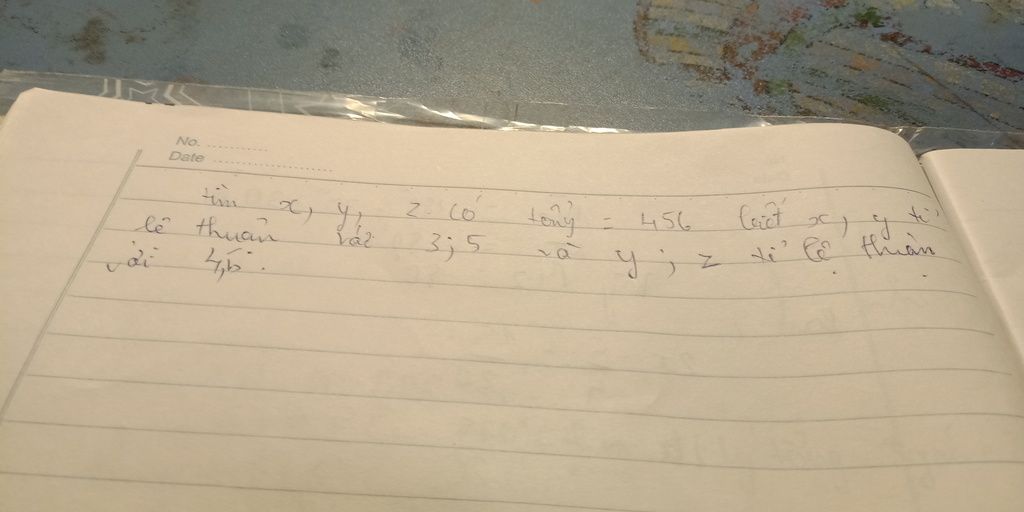 No. ..........
Date ....................
tìm x, y, z có tổng = 456 biết x, y tỉ
lê thuân với 3; 5 và y ; z tỉ lệ thuận
với 4,5.